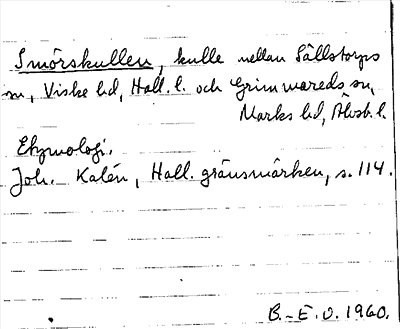 Smörskullen, kulle mellan Sällstorps
sn, Viske hd, Hall. l. och Grimmareds sn,
Marks hd, Älvsb. l.
Etymologi.
Joh. Kalén, Hall. gränsmärken, s. 114.
B.-E. O. 1960.